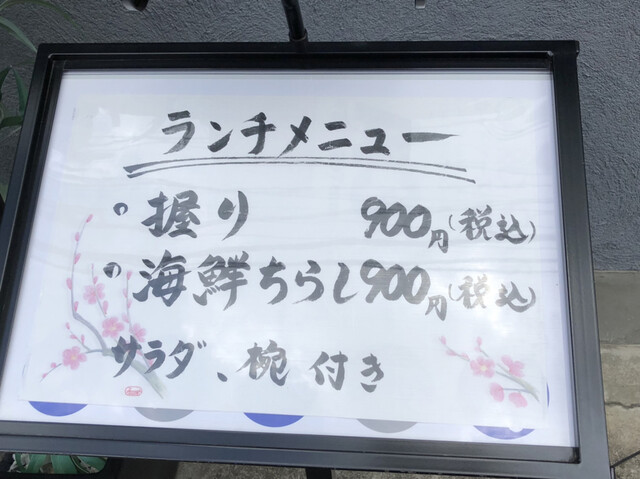 ランチメニュー
・握り 900円(税込)
・海鮮ちらし900円(税込)
サラダ、椀付き